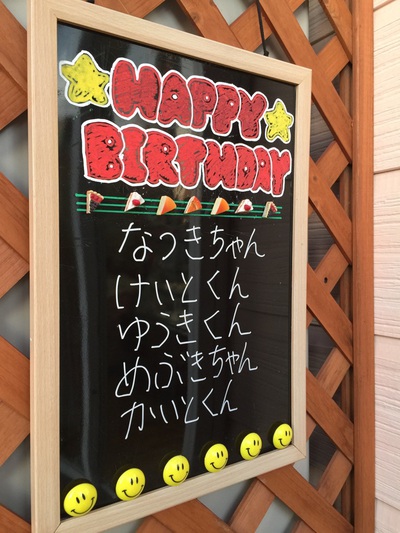 HAPPY
BIRTHDAY
なつきちゃん
けいとくん
ゆうきくん
めぶきちゃん
かいとくん